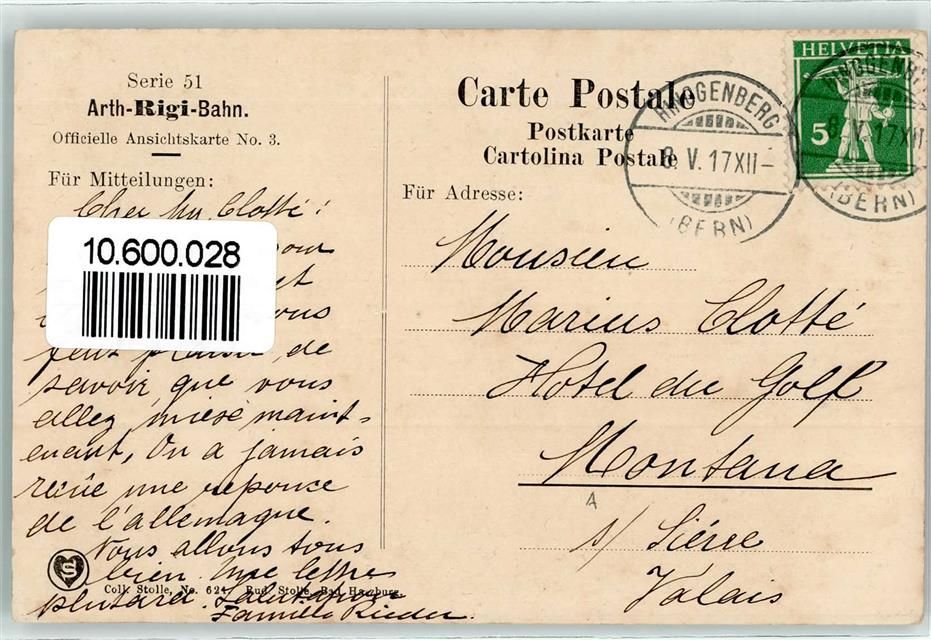 Serie 51
Arth-Rigi-Bahn.
Officielle Ansichtskarte No. 3.
Für Mitteilungen:
Cher Mr. Clotté!
10.600.028
pour
vous
peut plaisir de
savoir que vous
allez miese maint-
enant, On a jamais
reçue une reponse
de l'allemagne.
Vous allons tous
bien. Une lettre
plutard. Salutations
Famille Rieder.
S
Coll. Stolle, No. 624. Rud. Stolle, Bad Harzburg.
Carte Postale
Postkarte
Cartolina Postale
Für Adresse:
RINGGENBERG
8. V. 17 XII-
(BERN)
HELVETIA
5
RINGGENBERG
8. V. 17 XII-
(BERN)
Monsieur
Marius Clotté
Hotel du Golf
Montana
A
s/ Siérre
Valais